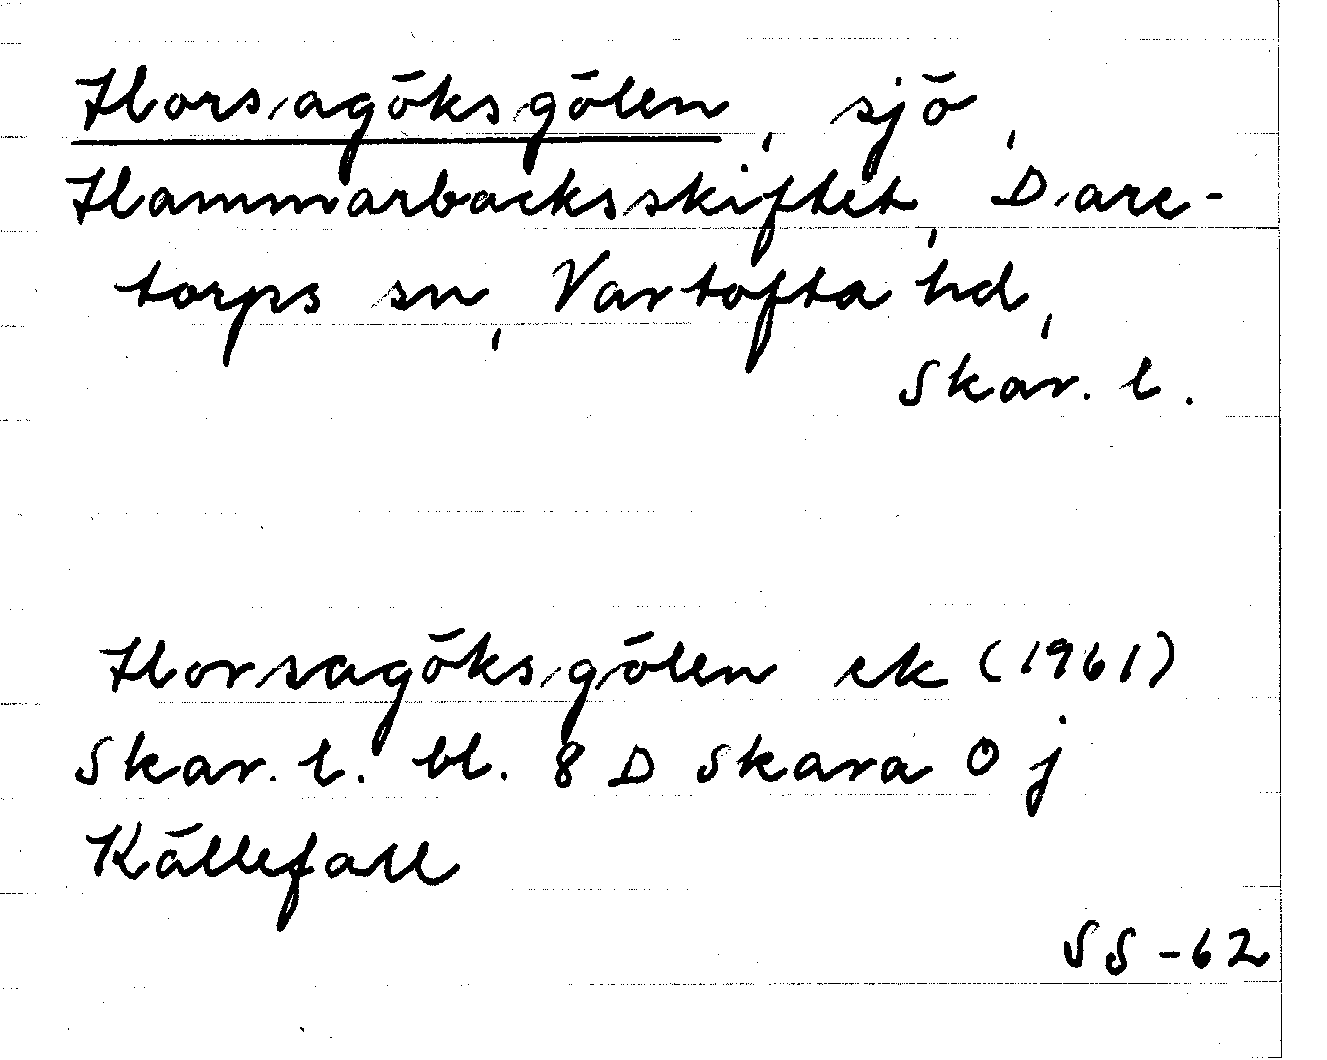 Horsagöksgölen, sjö,
Hammarbacksskiftet, Dare-
torps sn, Vartofta hd,
Skar. l.
Horsagöksgölen ek (1961)
Skar. l. bl. 8 D Skara 0 j
Källefall
SS -62